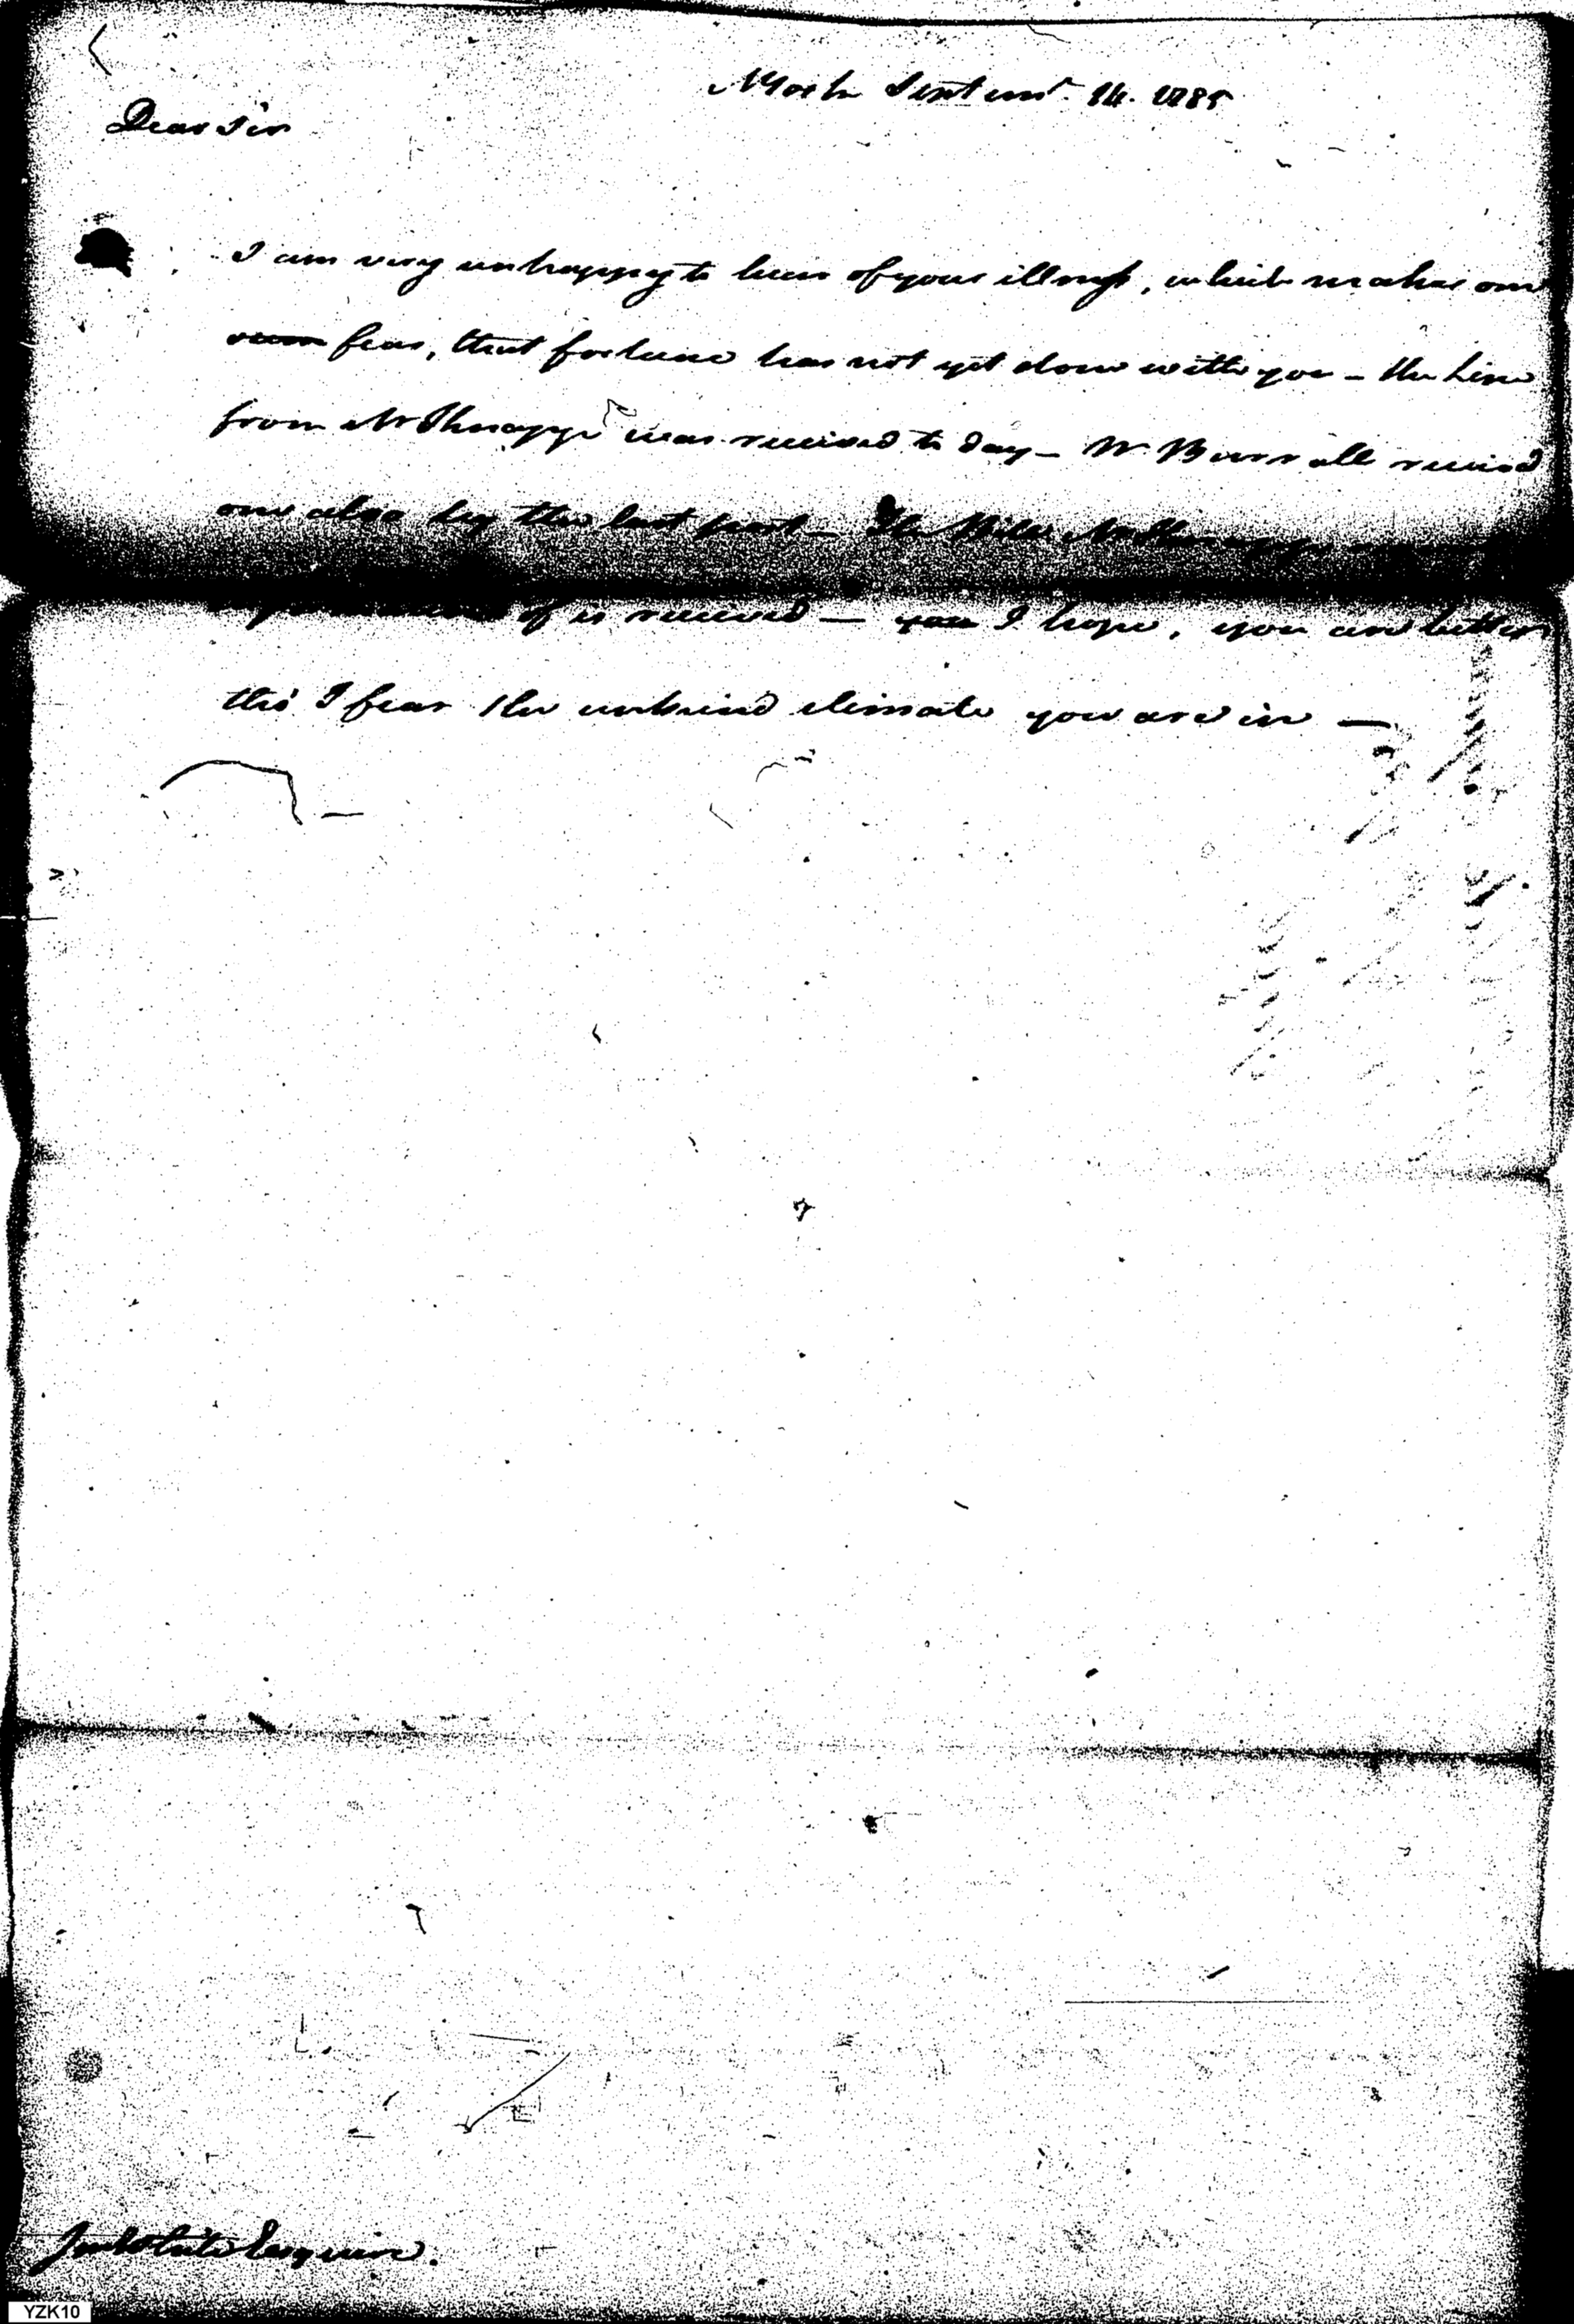 NYork Septemr. 14. 1785
Dear Sir
I am very unhappy to hear of your illness, which makes one
fear, that fortune has not yet done with you - the line
from Mr Knapp was received to day - Mr Burrall received
one also by the last post - The Bills Mr
of is received — you I hope, you are better
tho' I fear the unkind climate you are in —
Esquire.
YZK10